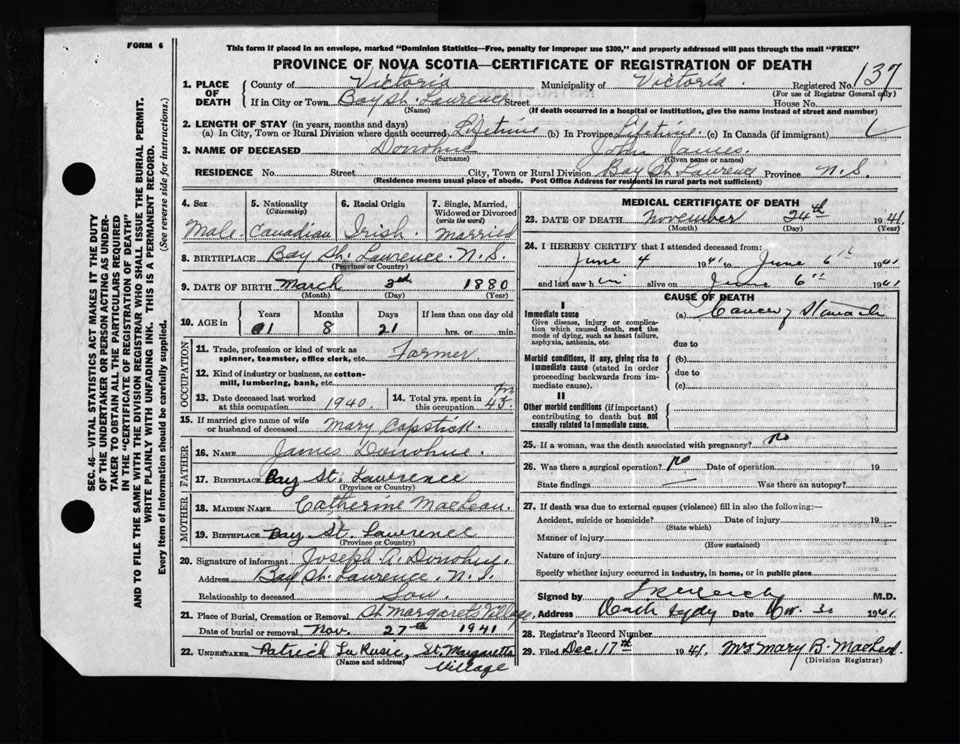 FORM 6
This form if placed in an envelope, marked "Dominion Statistics—Free, penalty for improper use $300," and properly addressed will pass through the mail "FREE"
PROVINCE OF NOVA SCOTIA—CERTIFICATE OF REGISTRATION OF DEATH
SEC. 46—VITAL STATISTICS ACT MAKES IT THE DUTY
OF THE UNDERTAKER OR PERSON ACTING AS UNDER-
TAKER "TO OBTAIN ALL THE PARTICULARS REQUIRED
IN THE "CERTIFICATE OF REGISTRATION OF DEATH"
AND TO FILE THE SAME WITH THE DIVISION REGISTRAR WHO SHALL ISSUE THE BURIAL PERMIT.
WRITE PLAINLY WITH UNFADING INK. THIS IS A PERMANENT RECORD.
Every item of information should be carefully supplied. (See reverse side for instructions.)
1. PLACE OF DEATH County of Victoria Municipality of Victoria Registered No. 137
(For use of Registrar General only)
If in City or Town Bay St. Lawrence Street House No.
(Name) (If death occurred in a hospital or institution, give the name instead of street and number)
2. LENGTH OF STAY (in years, months and days)
(a) In City, Town or Rural Division where death occurred Lifetime (b) In Province Lifetime (c) In Canada (if immigrant)
3. NAME OF DECEASED Donohue John James.
(Surname) (Given name or names)
RESIDENCE No. Street City, Town or Rural Division Bay St. Lawrence Province N.S.
(Residence means usual place of abode. Post Office Address for residents in rural parts not sufficient)
4. Sex 5. Nationality (Citizenship) 6. Racial Origin 7. Single, Married, Widowed or Divorced (write the word)
Male. Canadian Irish. Married
8. BIRTHPLACE Bay St. Lawrence. N.S.
(Province or Country)
9. DATE OF BIRTH March 3rd 1880
(Month) (Day) (Year)
10. AGE in Years Months Days If less than one day old
61 8 21 hrs. or min.
OCCUPATION
11. Trade, profession or kind of work as spinner, teamster, office clerk, etc. Farmer.
12. Kind of industry or business, as cotton-mill, lumbering, bank, etc.
13. Date deceased last worked at this occupation 1940. 14. Total yrs. spent in this occupation 45.
15. If married give name of wife or husband of deceased Mary Capstick.
FATHER
16. NAME James Donohue.
17. BIRTHPLACE Bay St. Lawrence
(Province or Country)
MOTHER
18. MAIDEN NAME Catherine MacLean.
19. BIRTHPLACE Bay St. Lawrence
(Province or Country)
20. Signature of informant Joseph A. Donohue.
Address Bay St. Lawrence. N.S.
Relationship to deceased Son.
21. Place of Burial, Cremation or Removal St. Margaret's Village,
Date of burial or removal Nov. 27th 1941
22. UNDERTAKER Patrick LaRusic, St. Margarets Village
(Name and address)
MEDICAL CERTIFICATE OF DEATH
23. DATE OF DEATH November 24th 1941
(Month) (Day) (Year)
24. I HEREBY CERTIFY that I attended deceased from:
June 4 1941 to June 6th 1941
and last saw him alive on June 6th 1941
CAUSE OF DEATH
I
Immediate cause (a) Cancer of Stomach
Give disease, injury or complication which caused death, not the mode of dying, such as heart failure, asphyxia, asthenia, etc. due to
Morbid conditions, if any, giving rise to immediate cause (stated in order proceeding backwards from immediate cause). (b)
due to
(c)
II
Other morbid conditions (if important) contributing to death but not causally related to immediate cause.
25. If a woman, was the death associated with pregnancy? no
26. Was there a surgical operation? no Date of operation 19
State findings Was there an autopsy?
27. If death was due to external causes (violence) fill in also the following:—
Accident, suicide or homicide? Date of injury 19
(State which)
Manner of injury
(How sustained)
Nature of injury
Specify whether injury occurred in industry, in home, or in public place
Signed by M.D.
Address Date Nov. 30 1941
28. Registrar's Record Number
29. Filed Dec. 17th 1941. Mrs Mary B. MacLeod.
(Division Registrar)